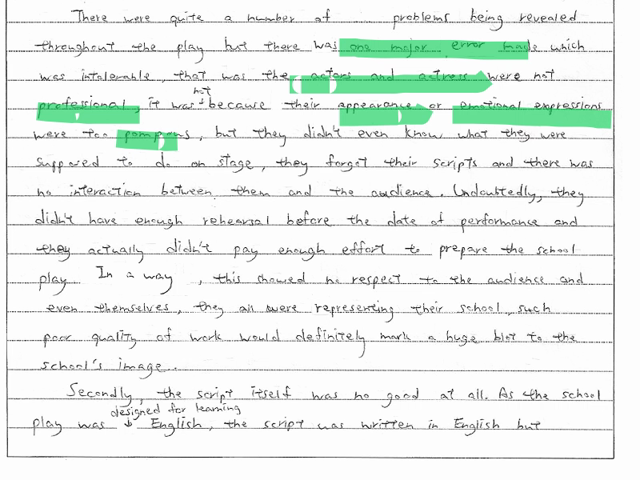 There were quite a number of problems being revealed
throughout the play but there was one major error made which
was intolerable, that was the actors and actress were not
not
professional, it was because their appearance or emotional expressions
were too pompous, but they didn't even know what they were
supposed to do on stage, they forget their scripts and there was
no interaction between them and the audience. Undoubtedly, they
didn't have enough rehearsal before the date of performance and
they actually didn't pay enough effort to prepare the school
play. In a way, this showed no respect to the audience and
even themselves, they all were representing their school, such
poor quality of work would definitely mark a huge blot to the
school's image.
Secondly, the script itself was no good at all. As the school
designed for learning
play was English, the script was written in English but